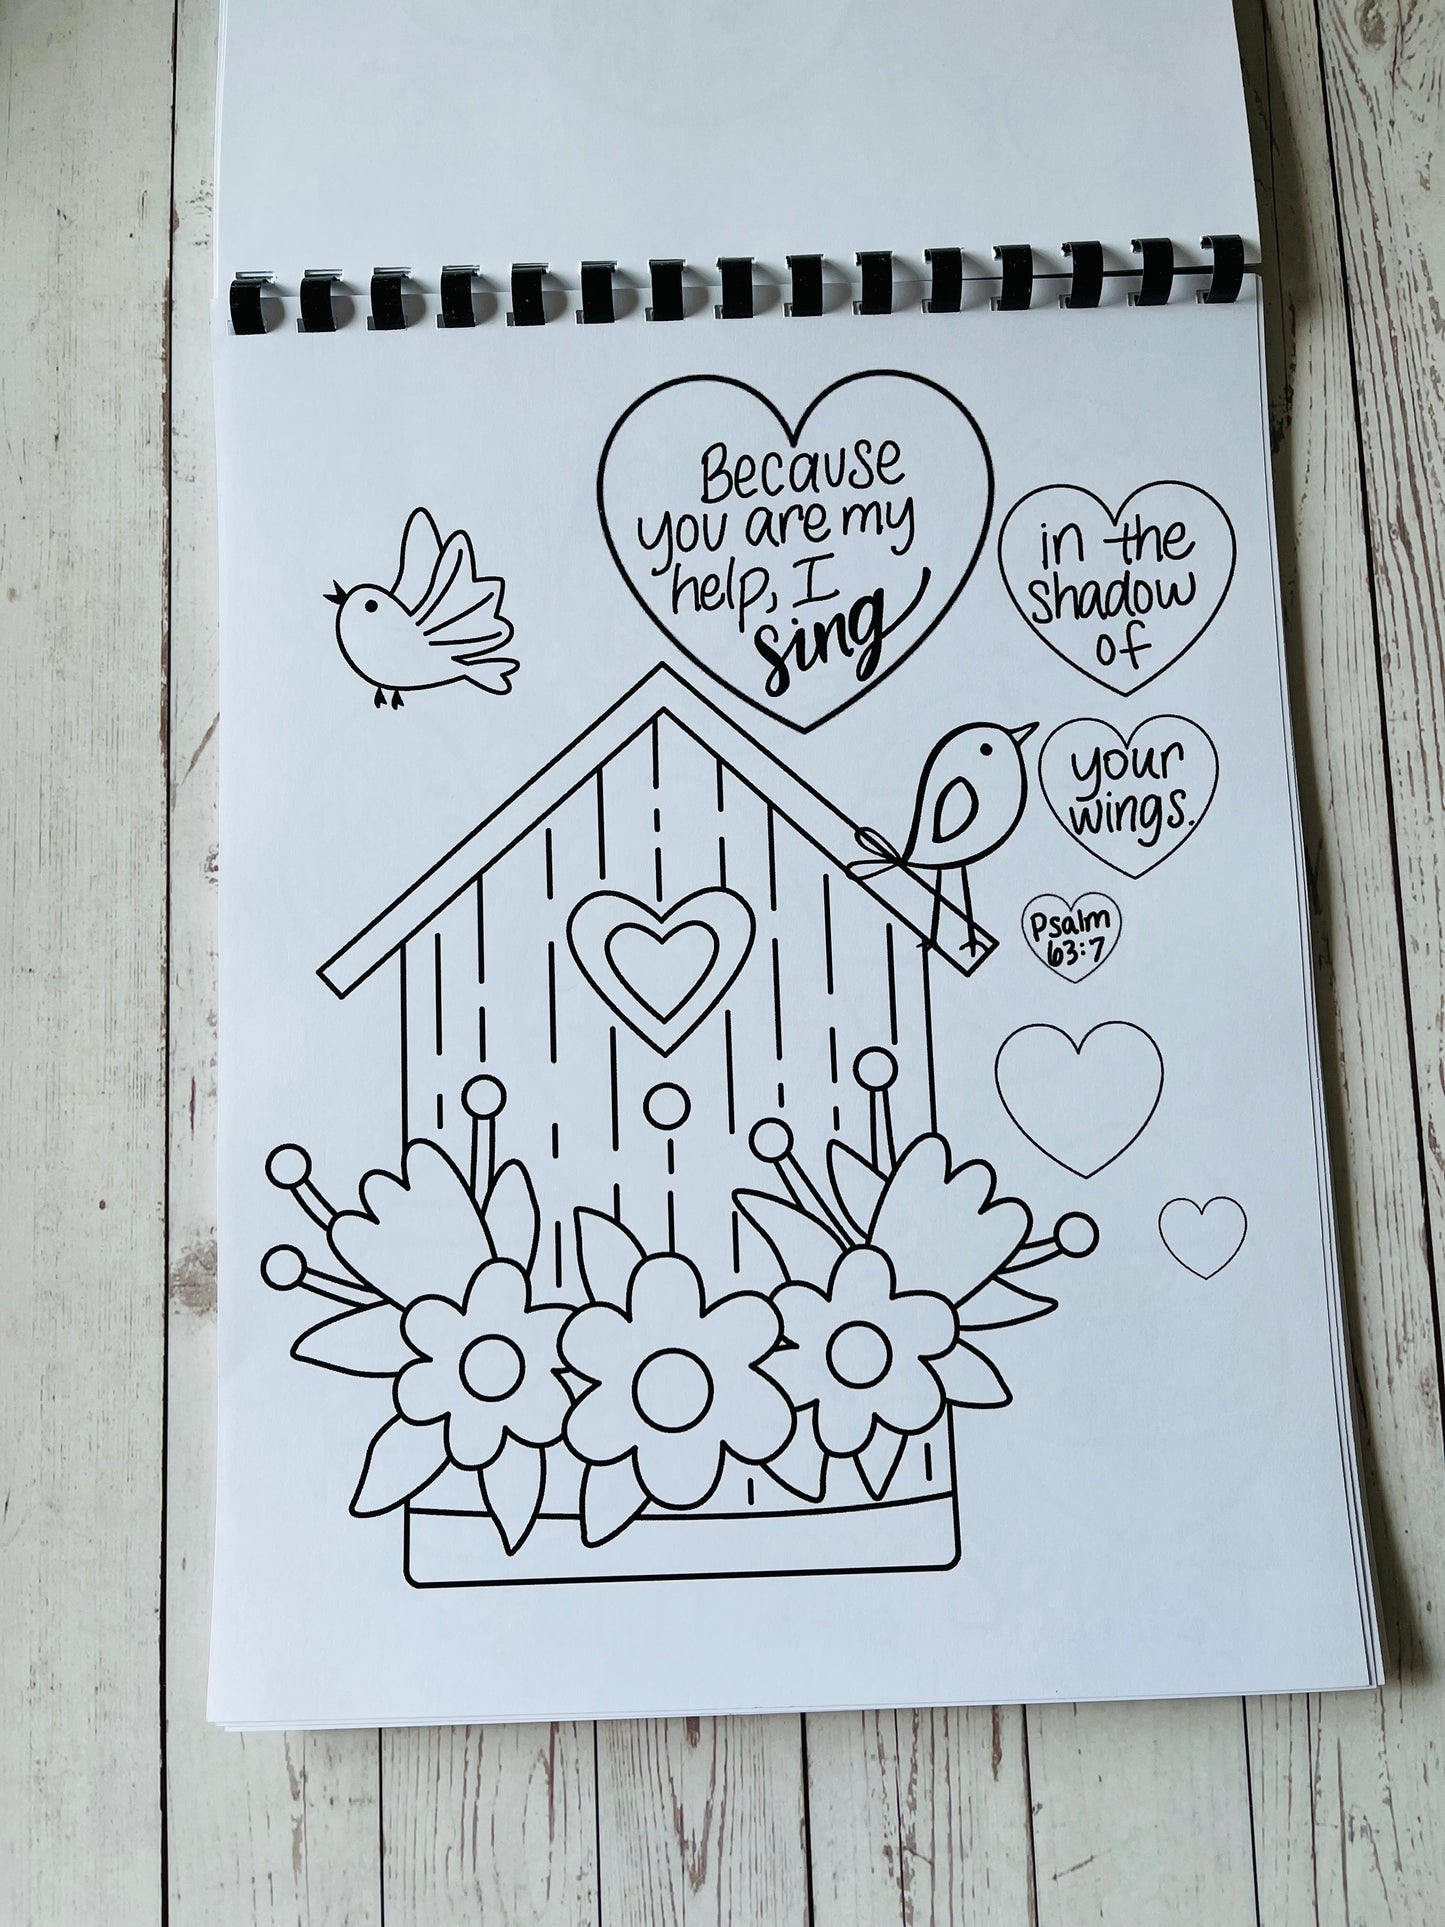 Because
you are my
help, I
sing
in the
shadow
of
your
wings.
Psalm
63:7